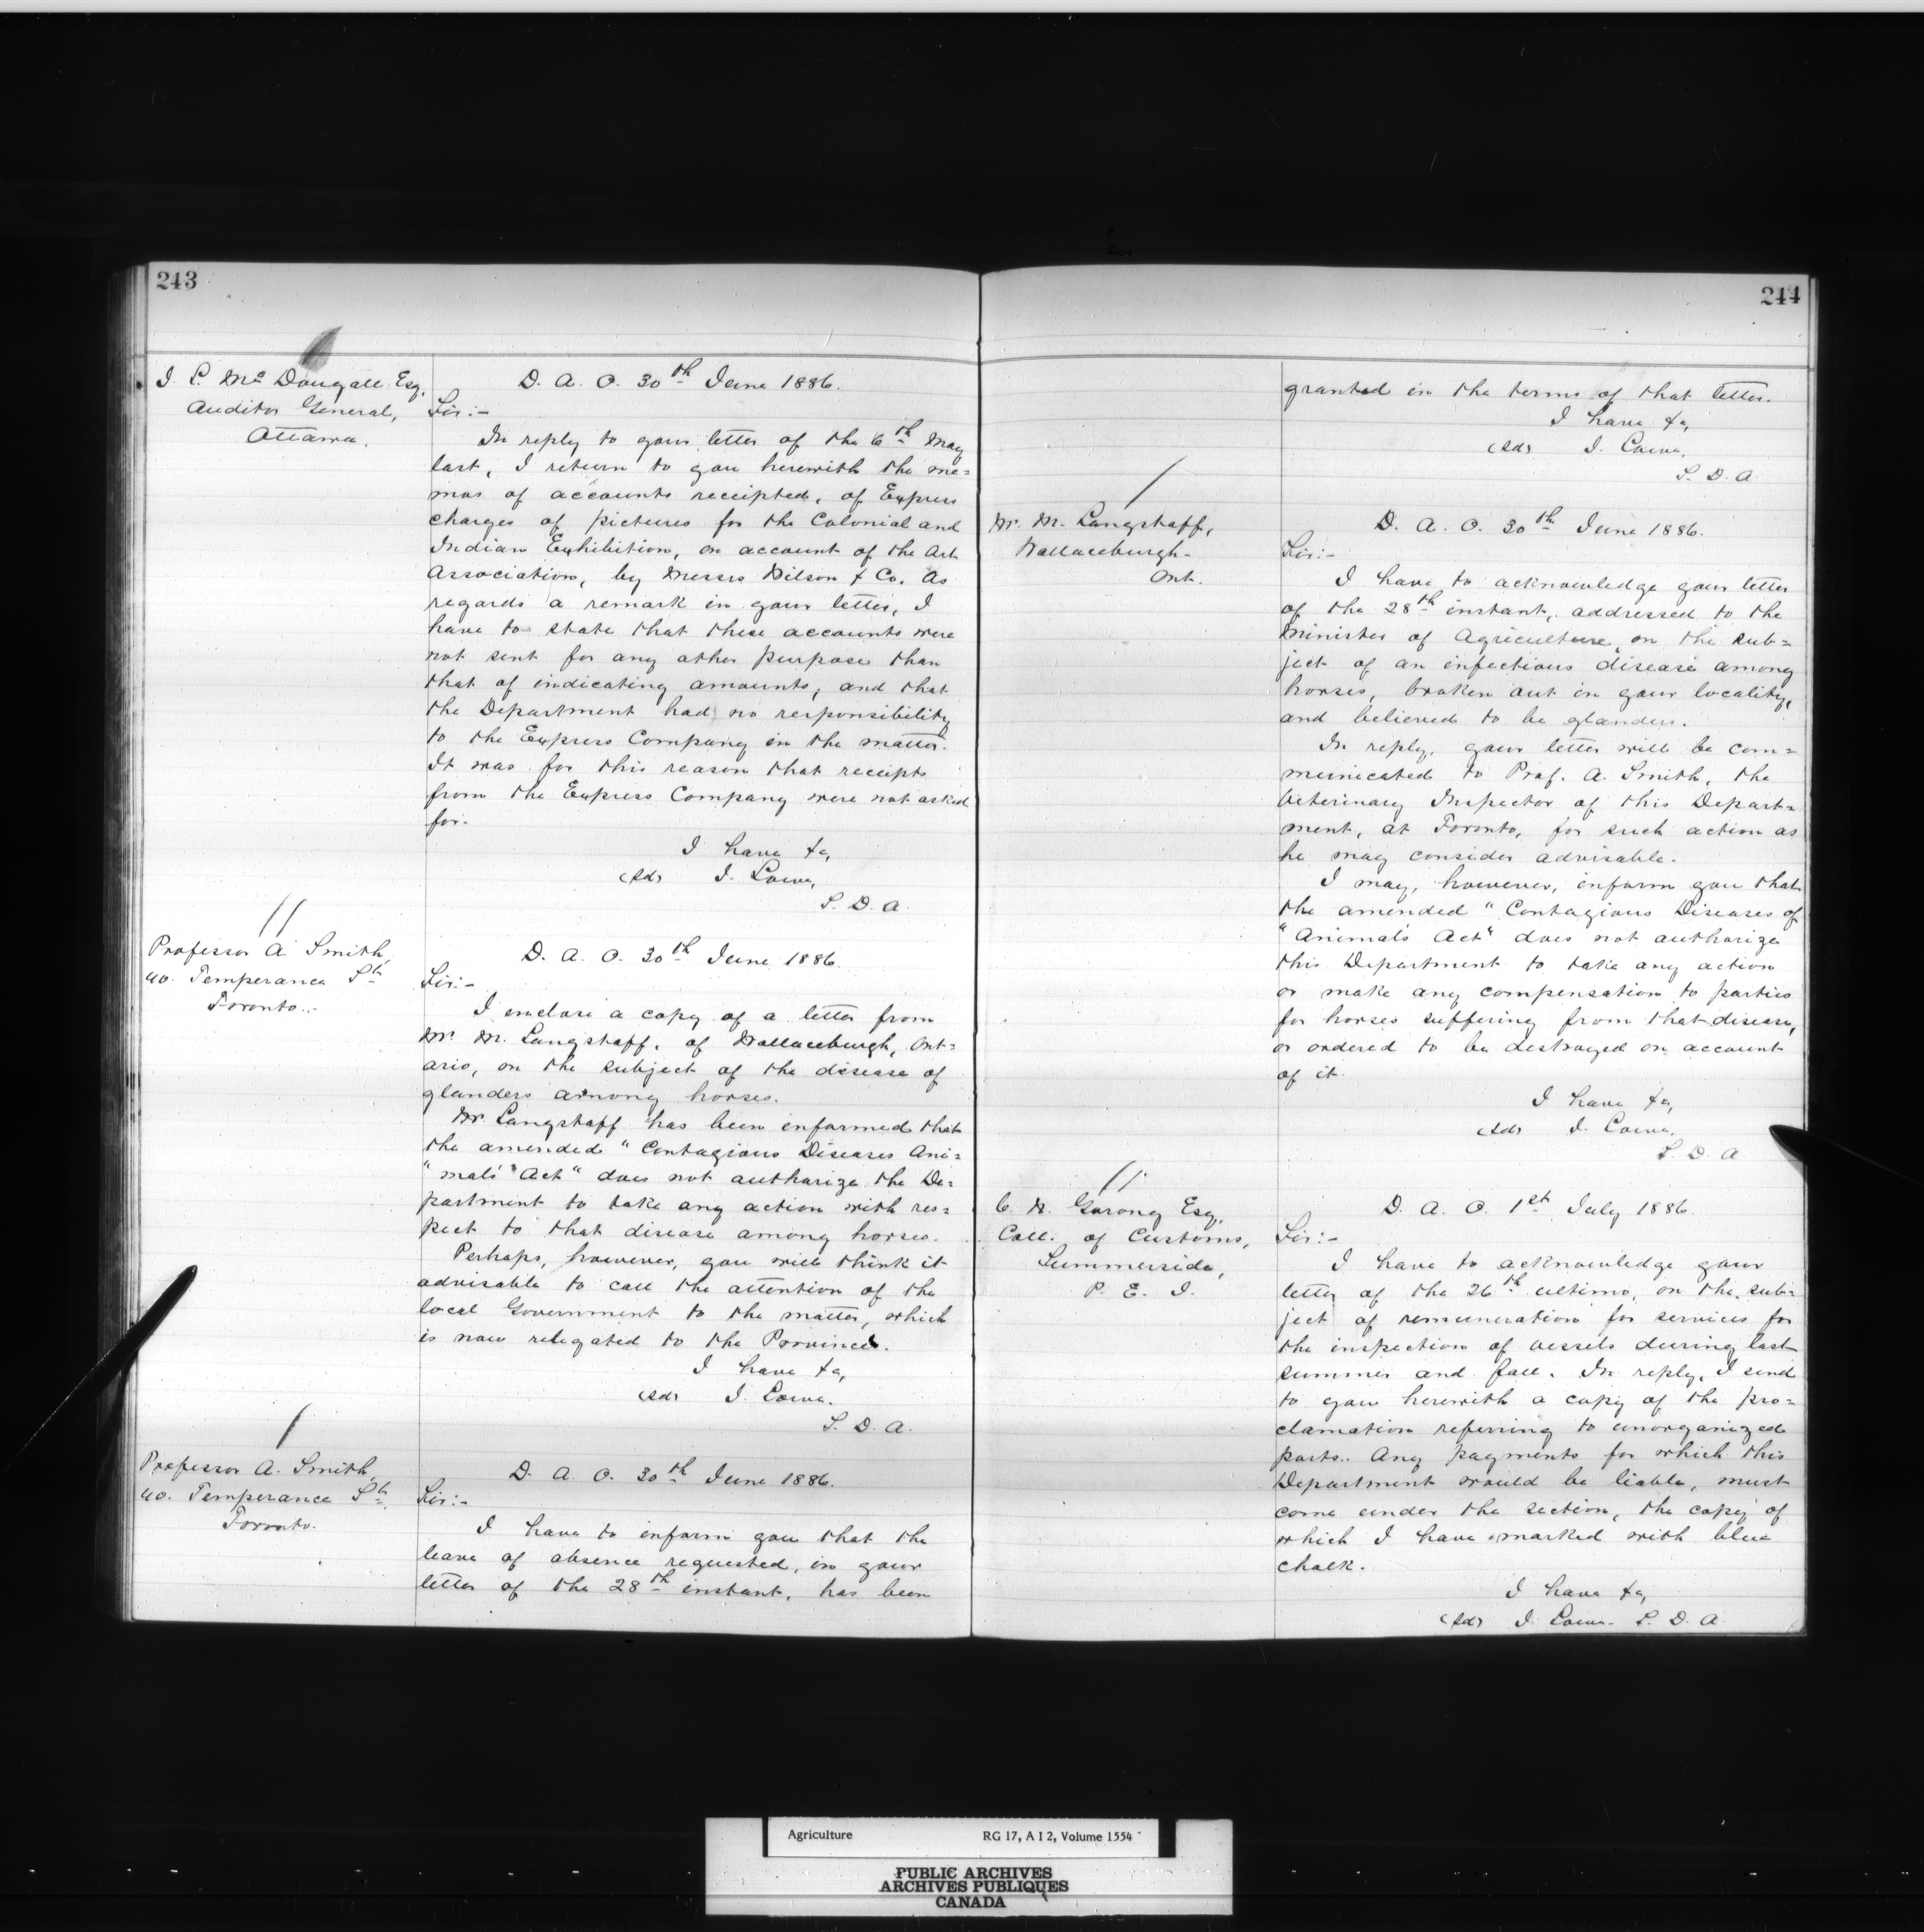 243
J. L. Mc Dougall Esq,
Auditor General,
Ottawa.
D. A. O. 30th June 1886.
Sir:-
In reply to your letter of the 6th May
last, I return to you herewith the me=
mos of accounts receipted, of Express
charges of pictures for the Colonial and
Indian Exhibition, on account of the Art
Association, by Messrs Wilson & Co. As
regards a remark in your letter, I
have to state that these accounts were
not sent for any other purpose than
that of indicating amounts, and that
the Department had no responsibility
to the Express Company in the matter.
It was for this reason that receipts
from the Express Company were not asked
for.
I have &c,
(sd) J. Lowe,
S. D. A.
Professor A. Smith,
40. Temperance St.
Toronto.
D. A. O. 30th June 1886.
Sir:-
I enclose a copy of a letter from
Mr. M. Langstaff, of Wallaceburgh, Ont=
ario, on the subject of the disease of
glanders among horses.
Mr Langstaff has been informed that
the amended "Contagious Diseases Ani=
"mals' Act" does not authorize the De=
partment to take any action with res=
pect to that disease among horses.
Perhaps, however, you will think it
advisable to call the attention of the
local Government to the matter, which
is now relegated to the Province.
I have &c,
(sd) J. Lowe.
S. D. A.
Professor A. Smith,
40. Temperance St.
Toronto.
D. A. O. 30th June 1886.
Sir:-
I have to inform you that the
leave of absence requested, in your
letter of the 28th instant, has been
244
granted in the terms of that letter.
I have &c,
(sd) J. Lowe,
S. D. A.
Mr. M. Langstaff,
Wallaceburgh.
Ont.
D. A. O. 30th June 1886.
Sir:-
I have to acknowledge your letter
of the 28th instant, addressed to the
Minister of Agriculture, on the sub=
ject of an infectious disease among
horses, broken out in your locality,
and believed to be glanders.
In reply, your letter will be com=
municated to Prof. A. Smith, the
Veterinary Inspector of this Depart=
ment, at Toronto, for such action as
he may consider advisable.
I may, however, inform you that
the amended "Contagious Diseases of
"Animals Act" does not authorize
this Department to take any action
or make any compensation to parties
for horses suffering from that disease,
or ordered to be destroyed on account
of it.
I have &c,
(sd) J. Lowe.
S. D. A
Esq,
Coll. of Customs,
Summerside,
P. E. I.
D. A. O. 1st July 1886.
Sir:-
I have to acknowledge your
letter of the 26th ultimo, on the sub=
ject of remuneration for services for
the inspection of vessels during last
summer and fall. In reply, I send
to you herewith a copy of the pro=
clamation referring to unorganized
ports. Any payments for which this
Department would be liable, must
come under the section, the copy of
which I have marked with blue
chalk.
I have &c,
(sd) J. Lowe. S. D. A.
Agriculture RG 17, A I 2, Volume 1554
PUBLIC ARCHIVES
ARCHIVES PUBLIQUES
CANADA